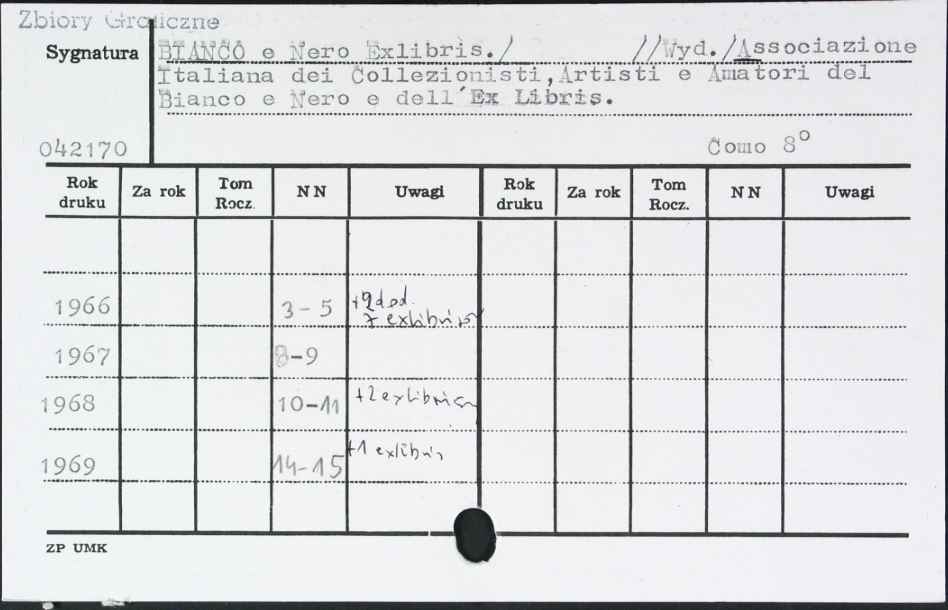 Zbiory Graficzne
Sygnatura BIANCO e Nero Exlibris./ //Wyd./Associazione
Italiana dei Collezionisti,Artisti e Amatori del
Bianco e Nero e dell'Ex Libris.
042170 Como 8°
Rok druku Za rok Tom Rocz. NN Uwagi Rok druku Za rok Tom Rocz. NN Uwagi
1966 3-5 +2dod.
7 exlibrisów
1967 8-9
1968 10-11 +2 exlibrisy
1969 14-15 +1 exlibris
ZP UMK